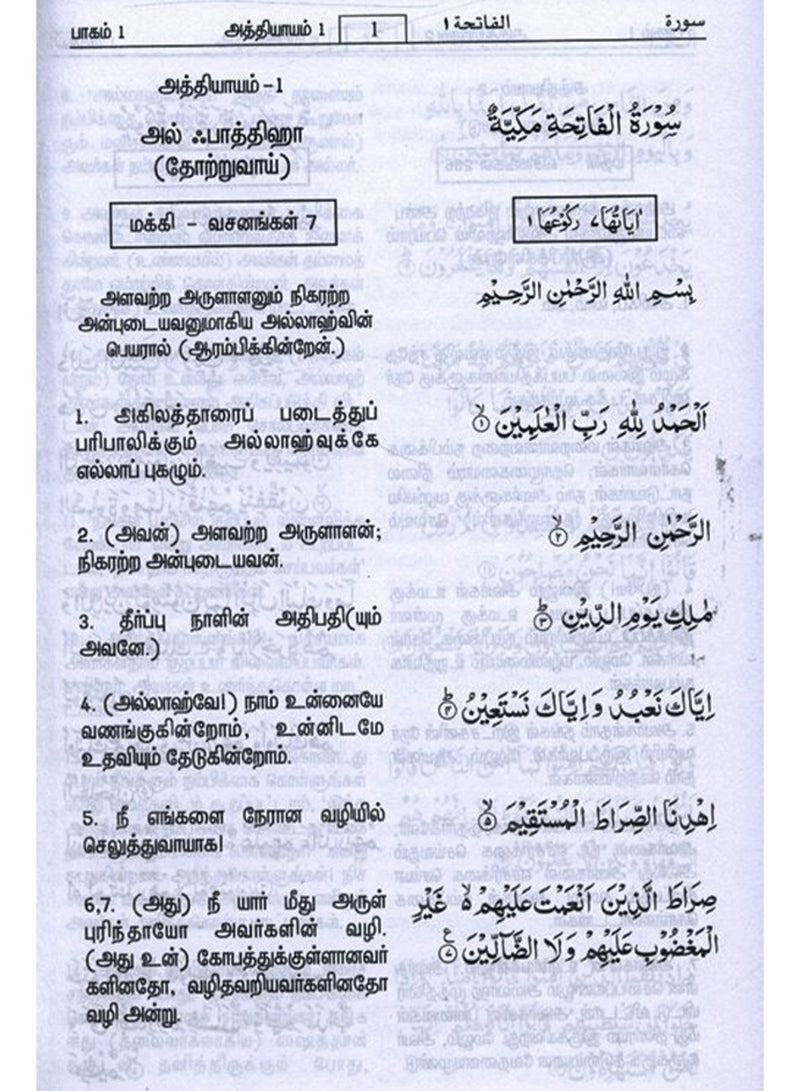 பாகம் 1 அத்தியாயம் 1 1 الفاتحة ١ سورة
அத்தியாயம் -1
அல் ஃபாத்திஹா
(தோற்றுவாய்)
மக்கி - வசனங்கள் 7
அளவற்ற அருளாளனும் நிகரற்ற
அன்புடையவனுமாகிய அல்லாஹ்வின்
பெயரால் (ஆரம்பிக்கின்றேன்.)
1. அகிலத்தாரைப் படைத்துப்
பரிபாலிக்கும் அல்லாஹ்வுக்கே
எல்லாப் புகழும்.
2. (அவன்) அளவற்ற அருளாளன்;
நிகரற்ற அன்புடையவன்.
3. தீர்ப்பு நாளின் அதிபதி(யும்
அவனே.)
4. (அல்லாஹ்வே!) நாம் உன்னையே
வணங்குகின்றோம், உன்னிடமே
உதவியும் தேடுகின்றோம்.
5. நீ எங்களை நேரான வழியில்
செலுத்துவாயாக!
6,7. (அது) நீ யார் மீது அருள்
புரிந்தாயோ அவர்களின் வழி.
(அது உன்) கோபத்துக்குள்ளானவர்
களினதோ, வழிதவறியவர்களினதோ
வழி அன்று.
سُوْرَةُ الْفَاتِحَةِ مَكِّيَّةٌ
اٰيَاتُهَا ٧ رُكُوْعُهَا ١
بِسْمِ اللّٰهِ الرَّحْمٰنِ الرَّحِيْمِ
اَلْحَمْدُ لِلّٰهِ رَبِّ الْعٰلَمِيْنَ ۙ‏ ١
الرَّحْمٰنِ الرَّحِيْمِ ۙ‏ ٢
مٰلِكِ يَوْمِ الدِّيْنِ ؕ‏ ٣
اِيَّاكَ نَعْبُدُ وَاِيَّاكَ نَسْتَعِيْنُ ؕ‏ ٤
اِهْدِنَا الصِّرَاطَ الْمُسْتَقِيْمَ ۙ‏ ٥
صِرَاطَ الَّذِيْنَ اَنْعَمْتَ عَلَيْهِمْ ۙ غَيْرِ
الْمَغْضُوْبِ عَلَيْهِمْ وَلَا الضَّآلِّيْنَ ٧